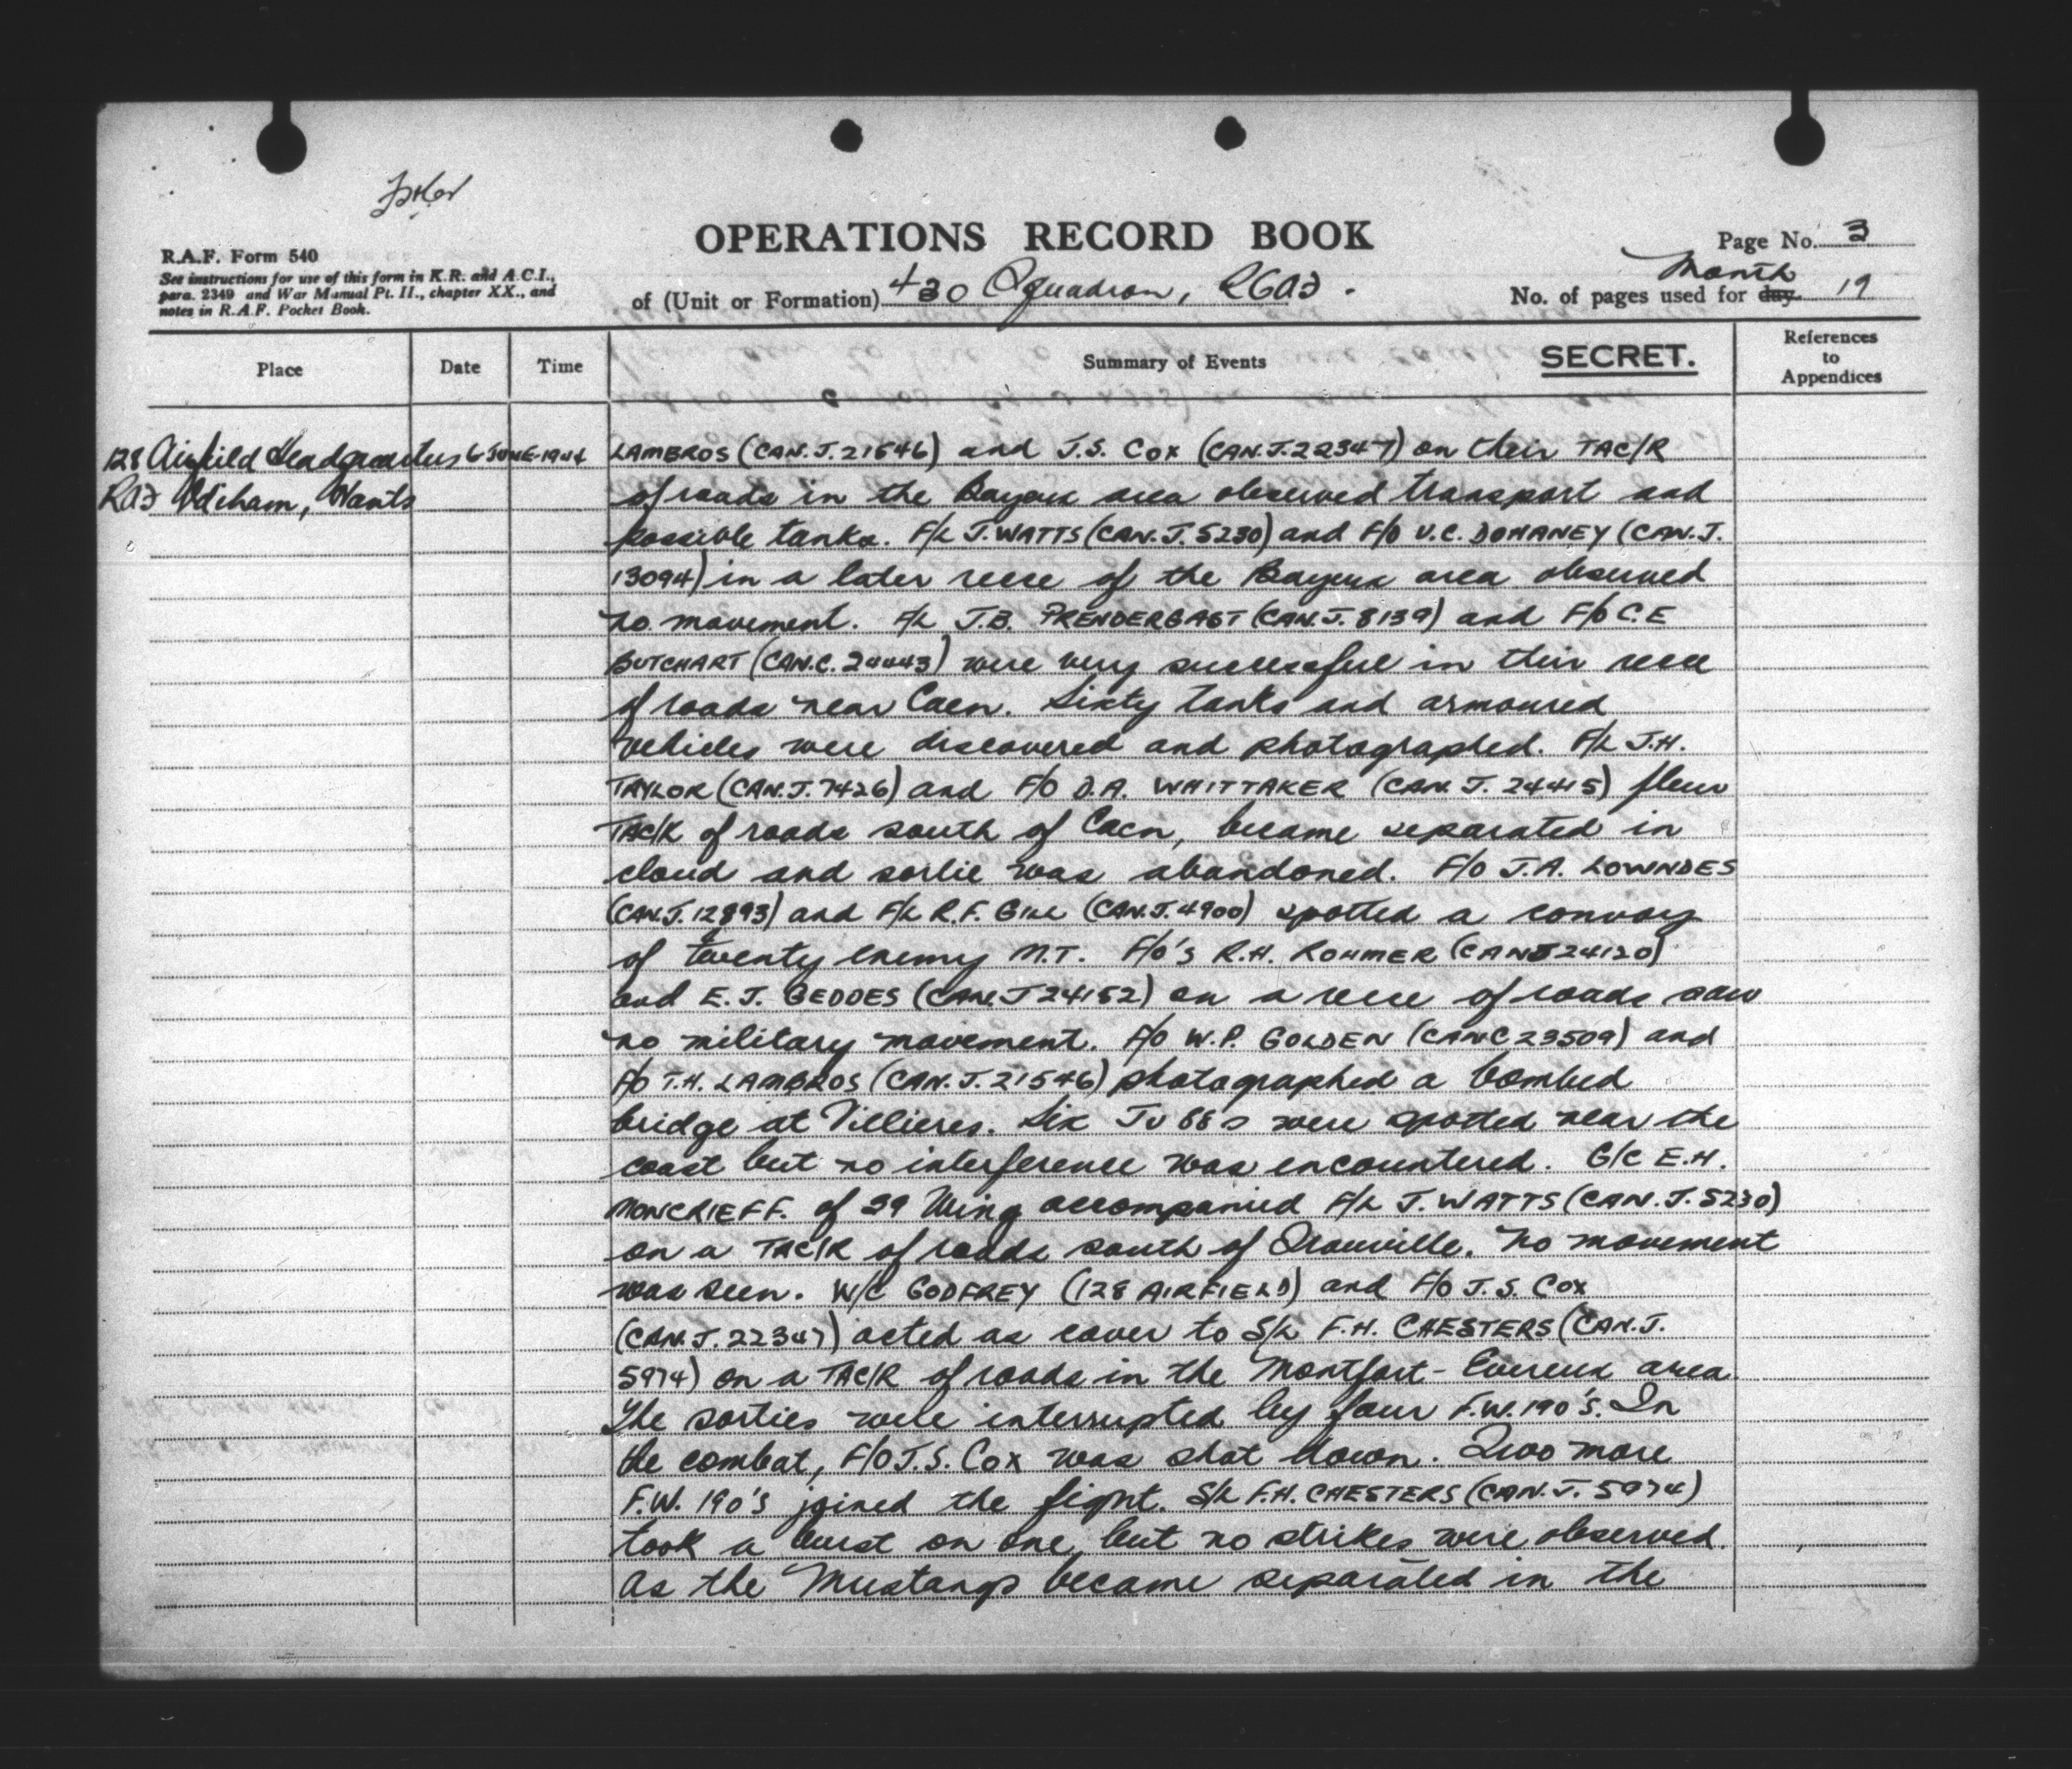 OPERATIONS RECORD BOOK
Page No. 3
R.A.F. Form 540
See instructions for use of this form in K.R. and A.C.I.,
para. 2349 and War Manual Pt. II., chapter XX., and
notes in R.A.F. Pocket Book.
of (Unit or Formation) 430 Squadron, RCAF.
Month
No. of pages used for day 19
Place
Date
Time
Summary of Events
SECRET.
References
to
Appendices
128 Airfield Headquarters 6 JUNE 1944
RAF Odiham, Hants
LAMBROS (CAN. J. 21546) and J.S. COX (CAN. J. 22347) on their TAC/R
of roads in the Bayeux area observed transport and
possible tanks. F/L J. WATTS (CAN. J. 5230) and F/O V.C. DOHANEY (CAN. J.
13094) in a later recce of the Bayeux area observed
no movement. F/L J.B. PRENDERGAST (CAN. J. 8139) and F/O C.E
BUTCHART (CAN. C. 24443) were very successful in their recce
of roads near Caen. Sixty tanks and armoured
vehicles were discovered and photographed. F/L J.H.
TAYLOR (CAN. J. 7426) and F/O D.A. WHITTAKER (CAN. J. 24415) flew
TAC/R of roads south of Caen, became separated in
cloud and sortie was abandoned. F/O J.A. LOWNDES
(CAN. J. 12893) and F/L R.F. GILL (CAN. J. 4900) spotted a convoy
of twenty enemy M.T. F/O's R.H. ROHMER (CAN J 24120)
and E.J. GEDDES (CAN. J 24152) on a recce of roads saw
no military movement. F/O W.P. GOLDEN (CAN C 23509) and
F/O T.H. LAMBROS (CAN. J. 21546) photographed a bombed
bridge at Villieres. Six JU 88s were spotted near the
coast but no interference was encountered. G/C E.H.
MONCRIEFF. of 39 Wing accompanied F/L J. WATTS (CAN. J. 5230)
on a TAC/R of roads south of Trouville. No movement
was seen. W/C GODFREY (128 AIRFIELD) and F/O J.S. COX
(CAN. J. 22347) acted as cover to S/L F.H. CHESTERS (CAN. J.
5974) on a TAC/R of roads in the Montfort - Evreux area.
The sorties were interrupted by four F.W. 190's. In
the combat, F/O J.S. COX was shot down. Two more
F.W. 190's joined the fight. S/L F.H. CHESTERS (CAN. J. 5974)
took a burst on one, but no strikes were observed.
As the Mustangs became separated in the